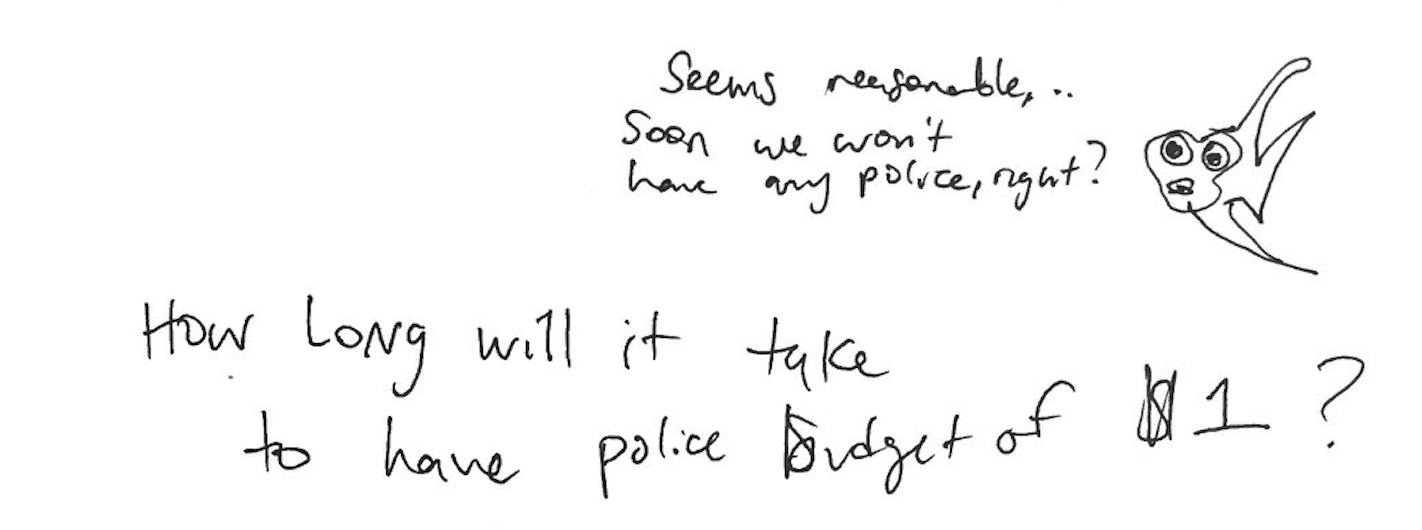 Seems reasonable,..
Soon we won't
have any police, right?
How Long will it take
to have police budget of $1?